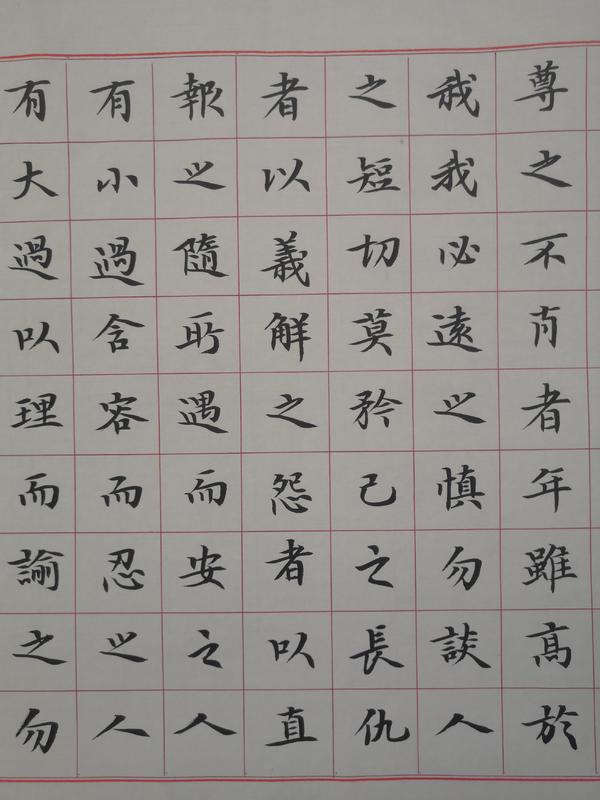 尊之不肖者年雖高於
我我必遠之慎勿談人
之短切莫矜己之長仇
者以義解之怨者以直
報之隨所遇而安之人
有小過含容而忍之人
有大過以理而諭之勿